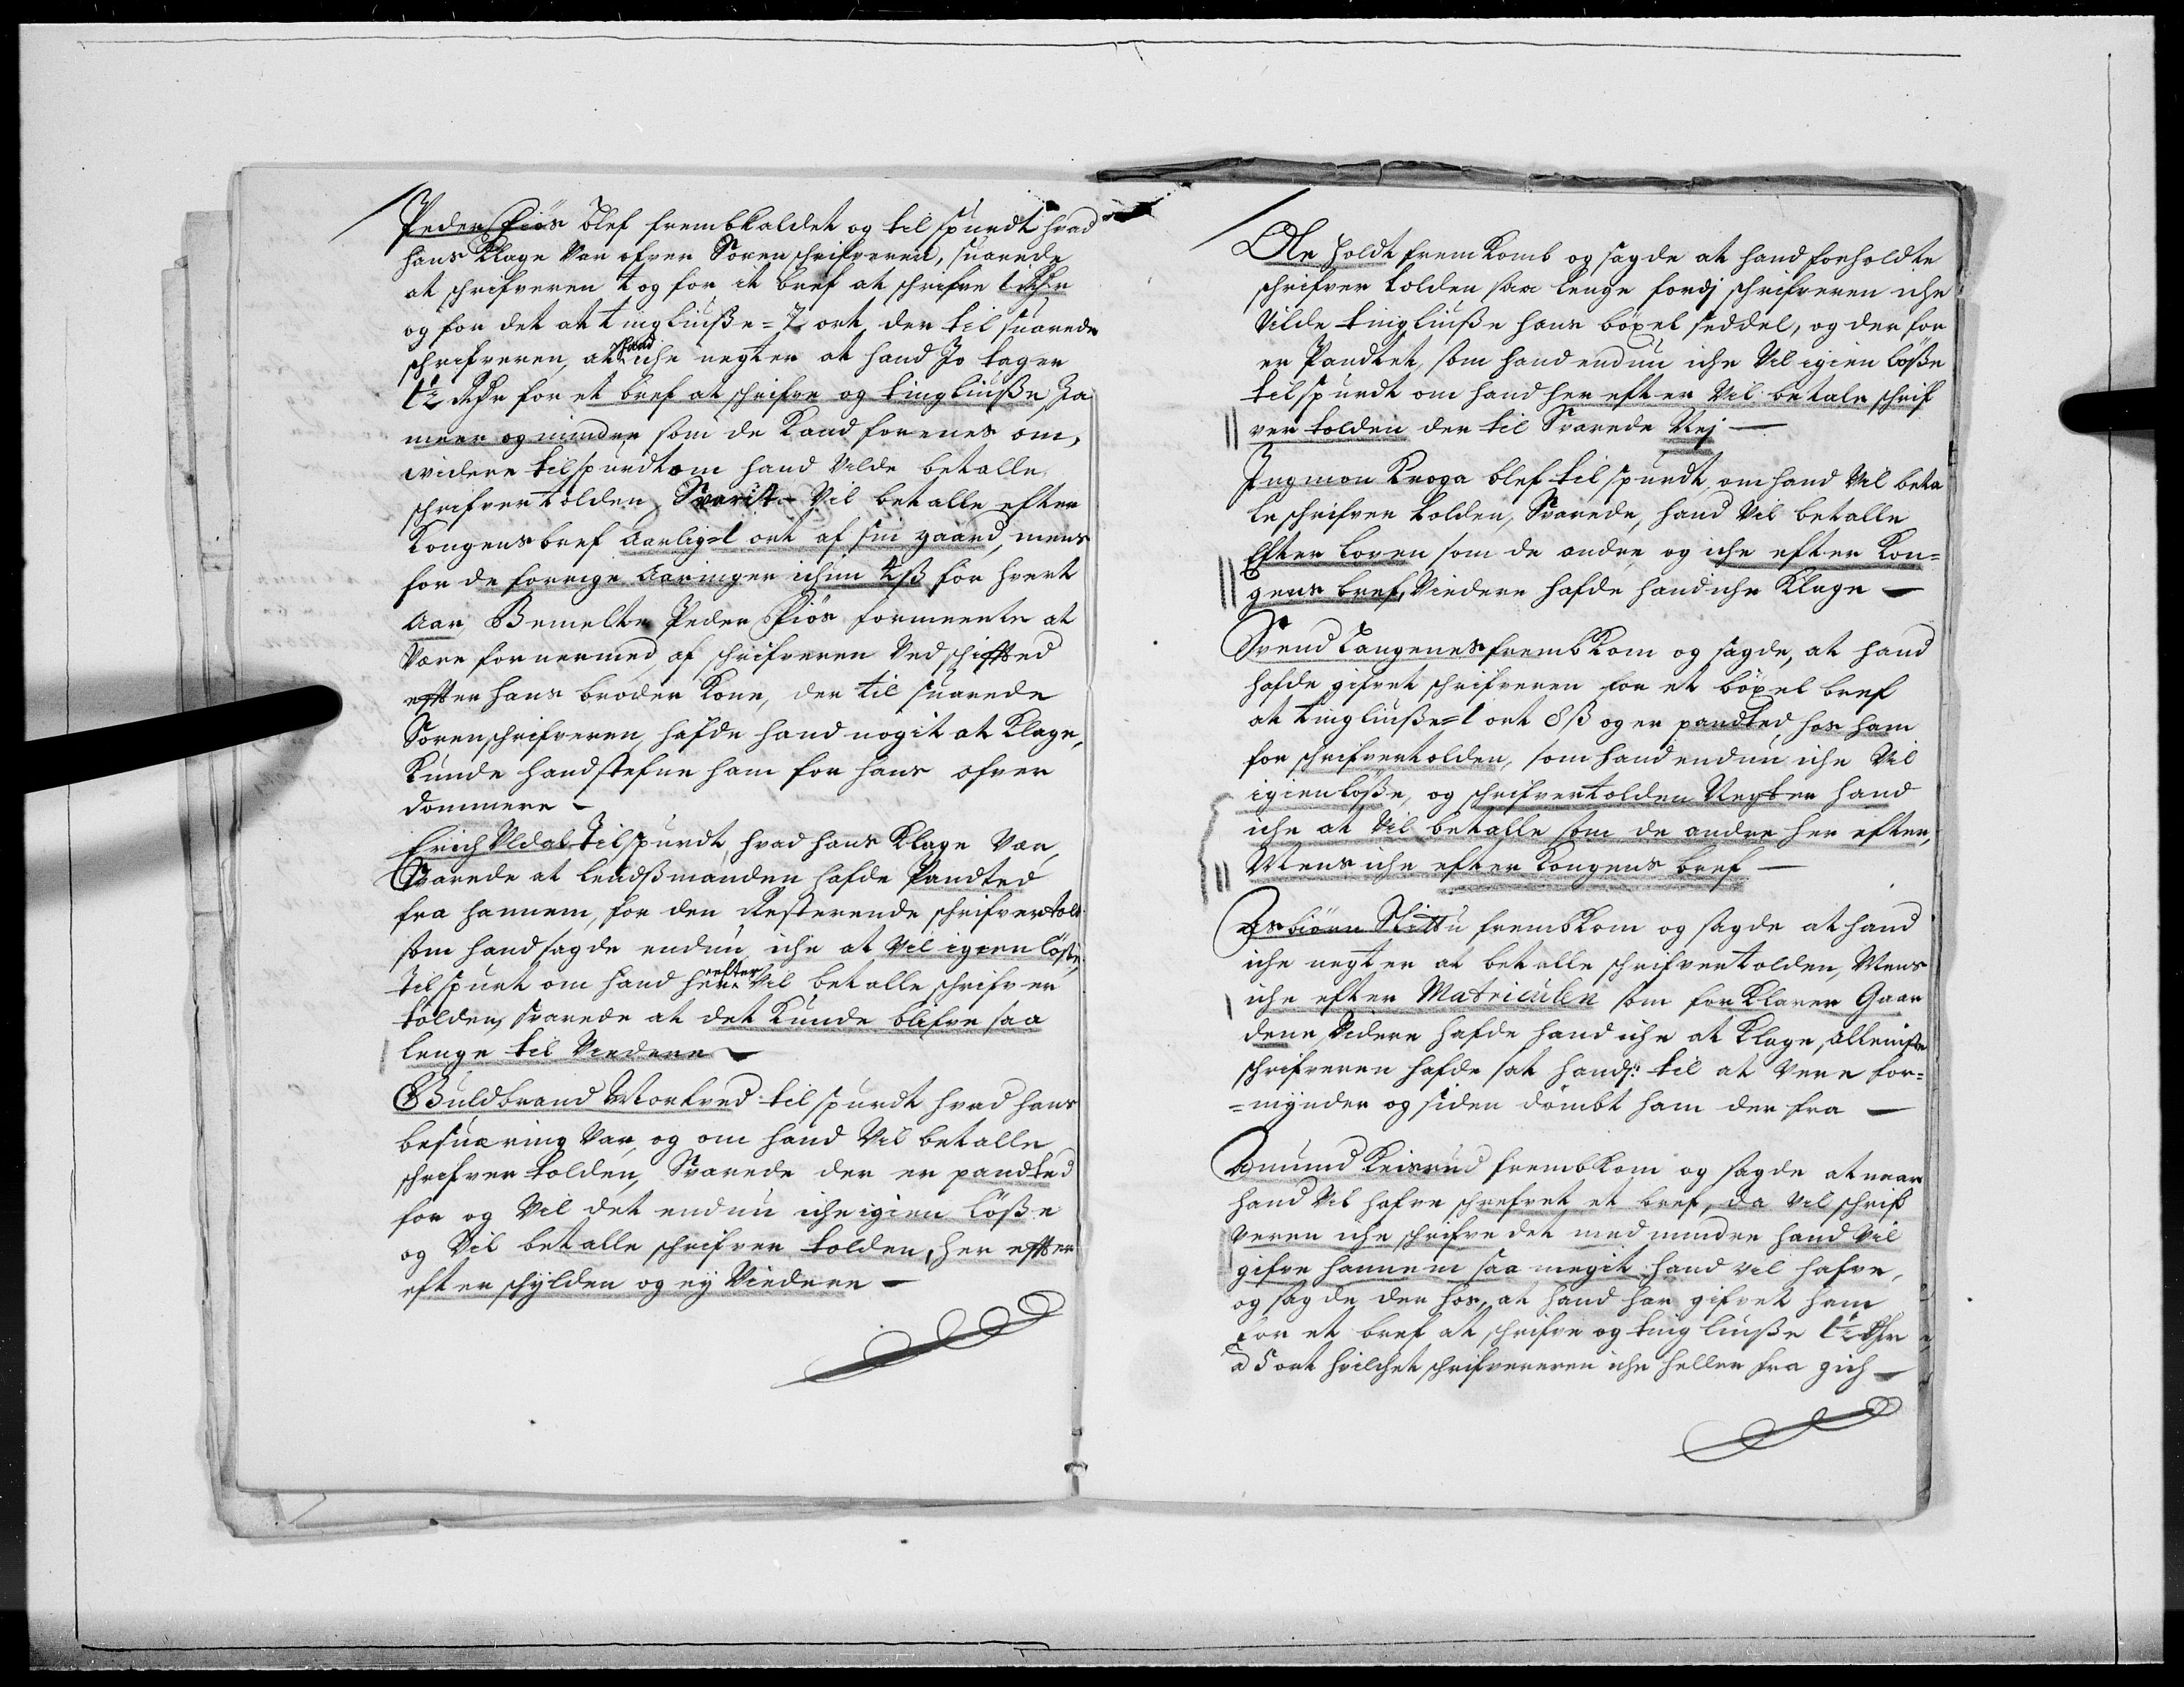 Peder Fiøs blef frembkaldet og til spurdt hvad
hans Klage Var ofver Sorenschrifveren, suarede
at schrifveren tog for it bref at schrifve 1 Rdr
og for det at tingliuße = 2 ort, der til suarede
schrifveren, at hand iche negter at hand Jo tager
1½ Rdr for et bref at schrifve og tingliuße Ja
meer og mindre som de Kand forenes om,
widere tilspurdt om hand Vilde betalle
schrifvertolden, Svarit Vil betalle efter
Kongens bref Aarlig = 1 ort af sin gaard, mens
for de forrige Aaringer ichun 4 ß for hvert
Aar, Bemelte Peder Fiøs formeente at
Være fornermed af schrifveren Ved schifted
effter hans broder Kone, der til suarede
Sorenschrifveren, hafde hand nogit at Klage,
Kunde hand stefne ham for hans ofver
dommere –
Erich Uldal Tilspurdt, hvad hans Klage Var,
Svarede at lendßmanden hafde Pandted
fra hannem, for den Resterende schrifvertold
som hand sagde endnu iche at Vil igien løße,
Tilspurt om hand her efter Vil betalle schrifver
tolden, svarede at det Kunde blifve saa
lenge til Viedere –
Guldbrand Mortved tilspurdt hvad hans
besuæring Var, og om hand Vil betalle
schrifver tolden, Svarede der er pandted
for og Vil det endnu iche igien løße
og Vil betalle schrifver tolden, her effter
efter schylden og ey Viedere –
Ole Holdt frem Komb og sagde at hand forholdte
schrifver tolden saa lenge fordj schrifveren iche
Vilde tingliuße hans bøxel seddel, og der for
er Pandtet, som hand endnu iche Vil igien løße
tilspurdt om hand her efter Vil betale schrif
ver tolden der til Svarede Nej –
Ingmon Kroga blef til spurdt, om hand Vil beta
le schrifver tolden, Svarede, hand Vil betalle
Efter loven som de andre og iche efter Kon=
gens bref, Viedere hafde hand iche Klage –
Svend Langenes frembKom og sagde, at hand
hafde gifvet schrifveren for et bøxel bref
at tingliuße = 1 ort 8 ß og er pandted, hos ham
for schrifvertolden, som hand endnu iche Vil
igien løße, og schrifvertolden Negter hand
iche at Vil betalle som de andre her efter,
Mens iche efter Kongens bref –
Esbiørn frembKom og sagde at hand
iche negter at betalle schrifvertolden, Mens
iche efter Matriculen som forKlarer Gaar
dene Videre hafde hand iche at Klage, alleniste
schrifveren hafde sat hand: til at Vere for=
=mynder og siden dømbt ham der fra –
Amund Keisrud frembKom og sagde at naar
hand Vil hafve schrefvet et bref, da Vil schrif
veren iche schrifve det med mindre hand Vil
gifve hannem saa megit hand vil hafve,
og sagde der hos, at hand har gifvet ham
for et bref at schrifve og tingliuße 1½ Rdr
a 5 ort hvilchet schrifvereren iche heller fra gich –